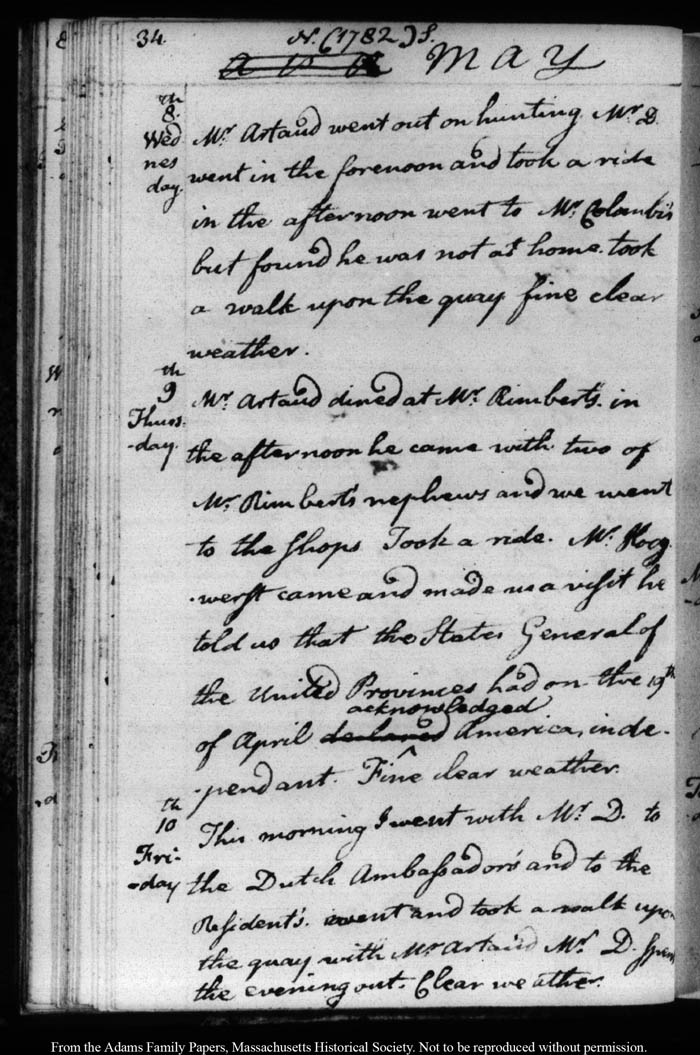 34. N. (1782) S.
MAY
8.th
Wed
nes
day.
Mr. Artaud went out on hunting. Mr. D.
went in the forenoon and took a ride
in the afternoon went to Mr. Colombi's
but found he was not at home. took
a walk upon the quay fine clear
weather.
9th
Thurs.
-day.
Mr. Artaud dined at Mr. Rimberts. in
the afternoon he came with two of
Mr. Rimbert's nephews and we went
to the shops Took a ride. Mr. Hoog
-werst came and made us a visit he
told us that the States General of
the United Provinces had on the 19th
acknowledged
of April declared America, inde-
-pendant. Fine clear weather.
10th
Fri-
-day
This morning I went with Mr. D. to
the Dutch Ambassador's and to the
Resident's. went and took a walk upon
the quay with Mr. Artaud Mr. D. spent
the evening out. Clear weather.
From the Adams Family Papers, Massachusetts Historical Society. Not to be reproduced without permission.